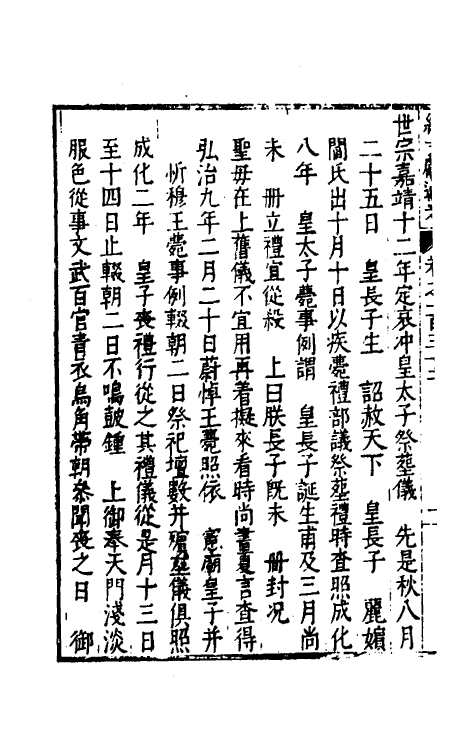 世宗嘉靖十二年定哀冲皇太子祭塟儀 先是秋八月
二十五日 皇長子生 詔赦天下 皇長子 麗嬪
閻氏出十月十日以疾薨禮部議祭塟禮時査照成化
八年 皇太子薨事例謂 皇長子誕生甫及三月尚
未 册立禮宜從殺 上曰朕長子既未 册封况
聖母在上舊儀不宜用再着擬來看時尚書夏言査得
弘治九年二月二十日蔚悼王薨照依 憲廟皇子并
忻穆王薨事例輟朝二日祭祀壇數并殯塟儀俱照
成化二年 皇子喪禮行從之其禮儀從是月十三日
至十四日止輟朝二日不鳴皷鍾 上御奉天門淺淡
服色從事文武百官青衣烏角帶朝叅聞喪之日 御